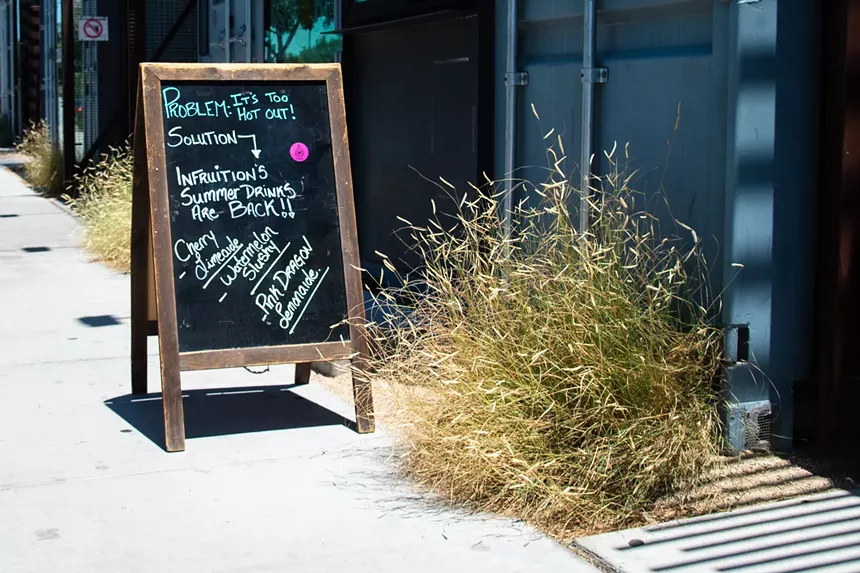 PROBLEM: IT'S TOO
HOT OUT!
SOLUTION
INFRUITION'S
SUMMER DRINKS
ARE BACK!!
- Cherry
Limeade
- Watermelon
Slushy
- PINK DRAGON
Lemonade